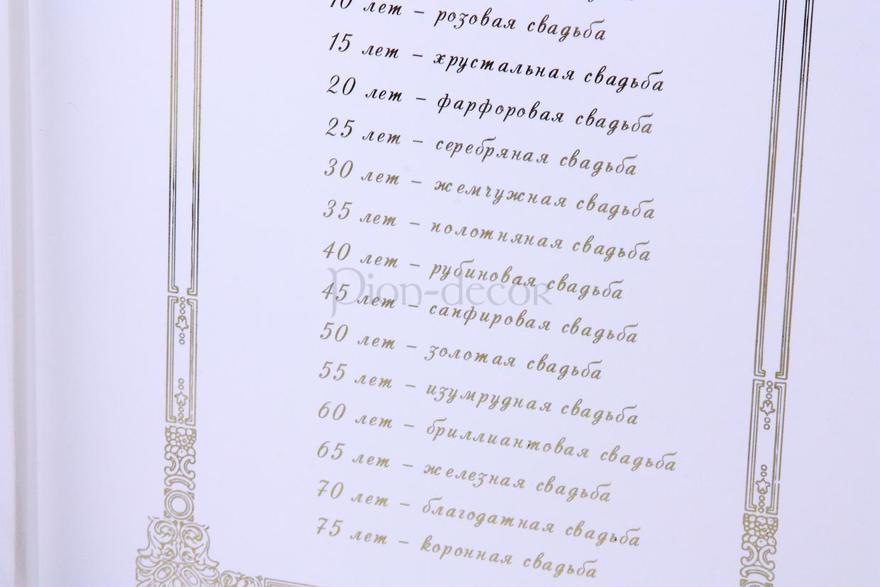 10 лет – розовая свадьба
15 лет – хрустальная свадьба
20 лет – фарфоровая свадьба
25 лет – серебряная свадьба
30 лет – жемчужная свадьба
35 лет – полотняная свадьба
40 лет – рубиновая свадьба
Pion-decor
45 лет – сапфировая свадьба
50 лет – золотая свадьба
55 лет – изумрудная свадьба
60 лет – бриллиантовая свадьба
65 лет – железная свадьба
70 лет – благодатная свадьба
75 лет – коронная свадьба